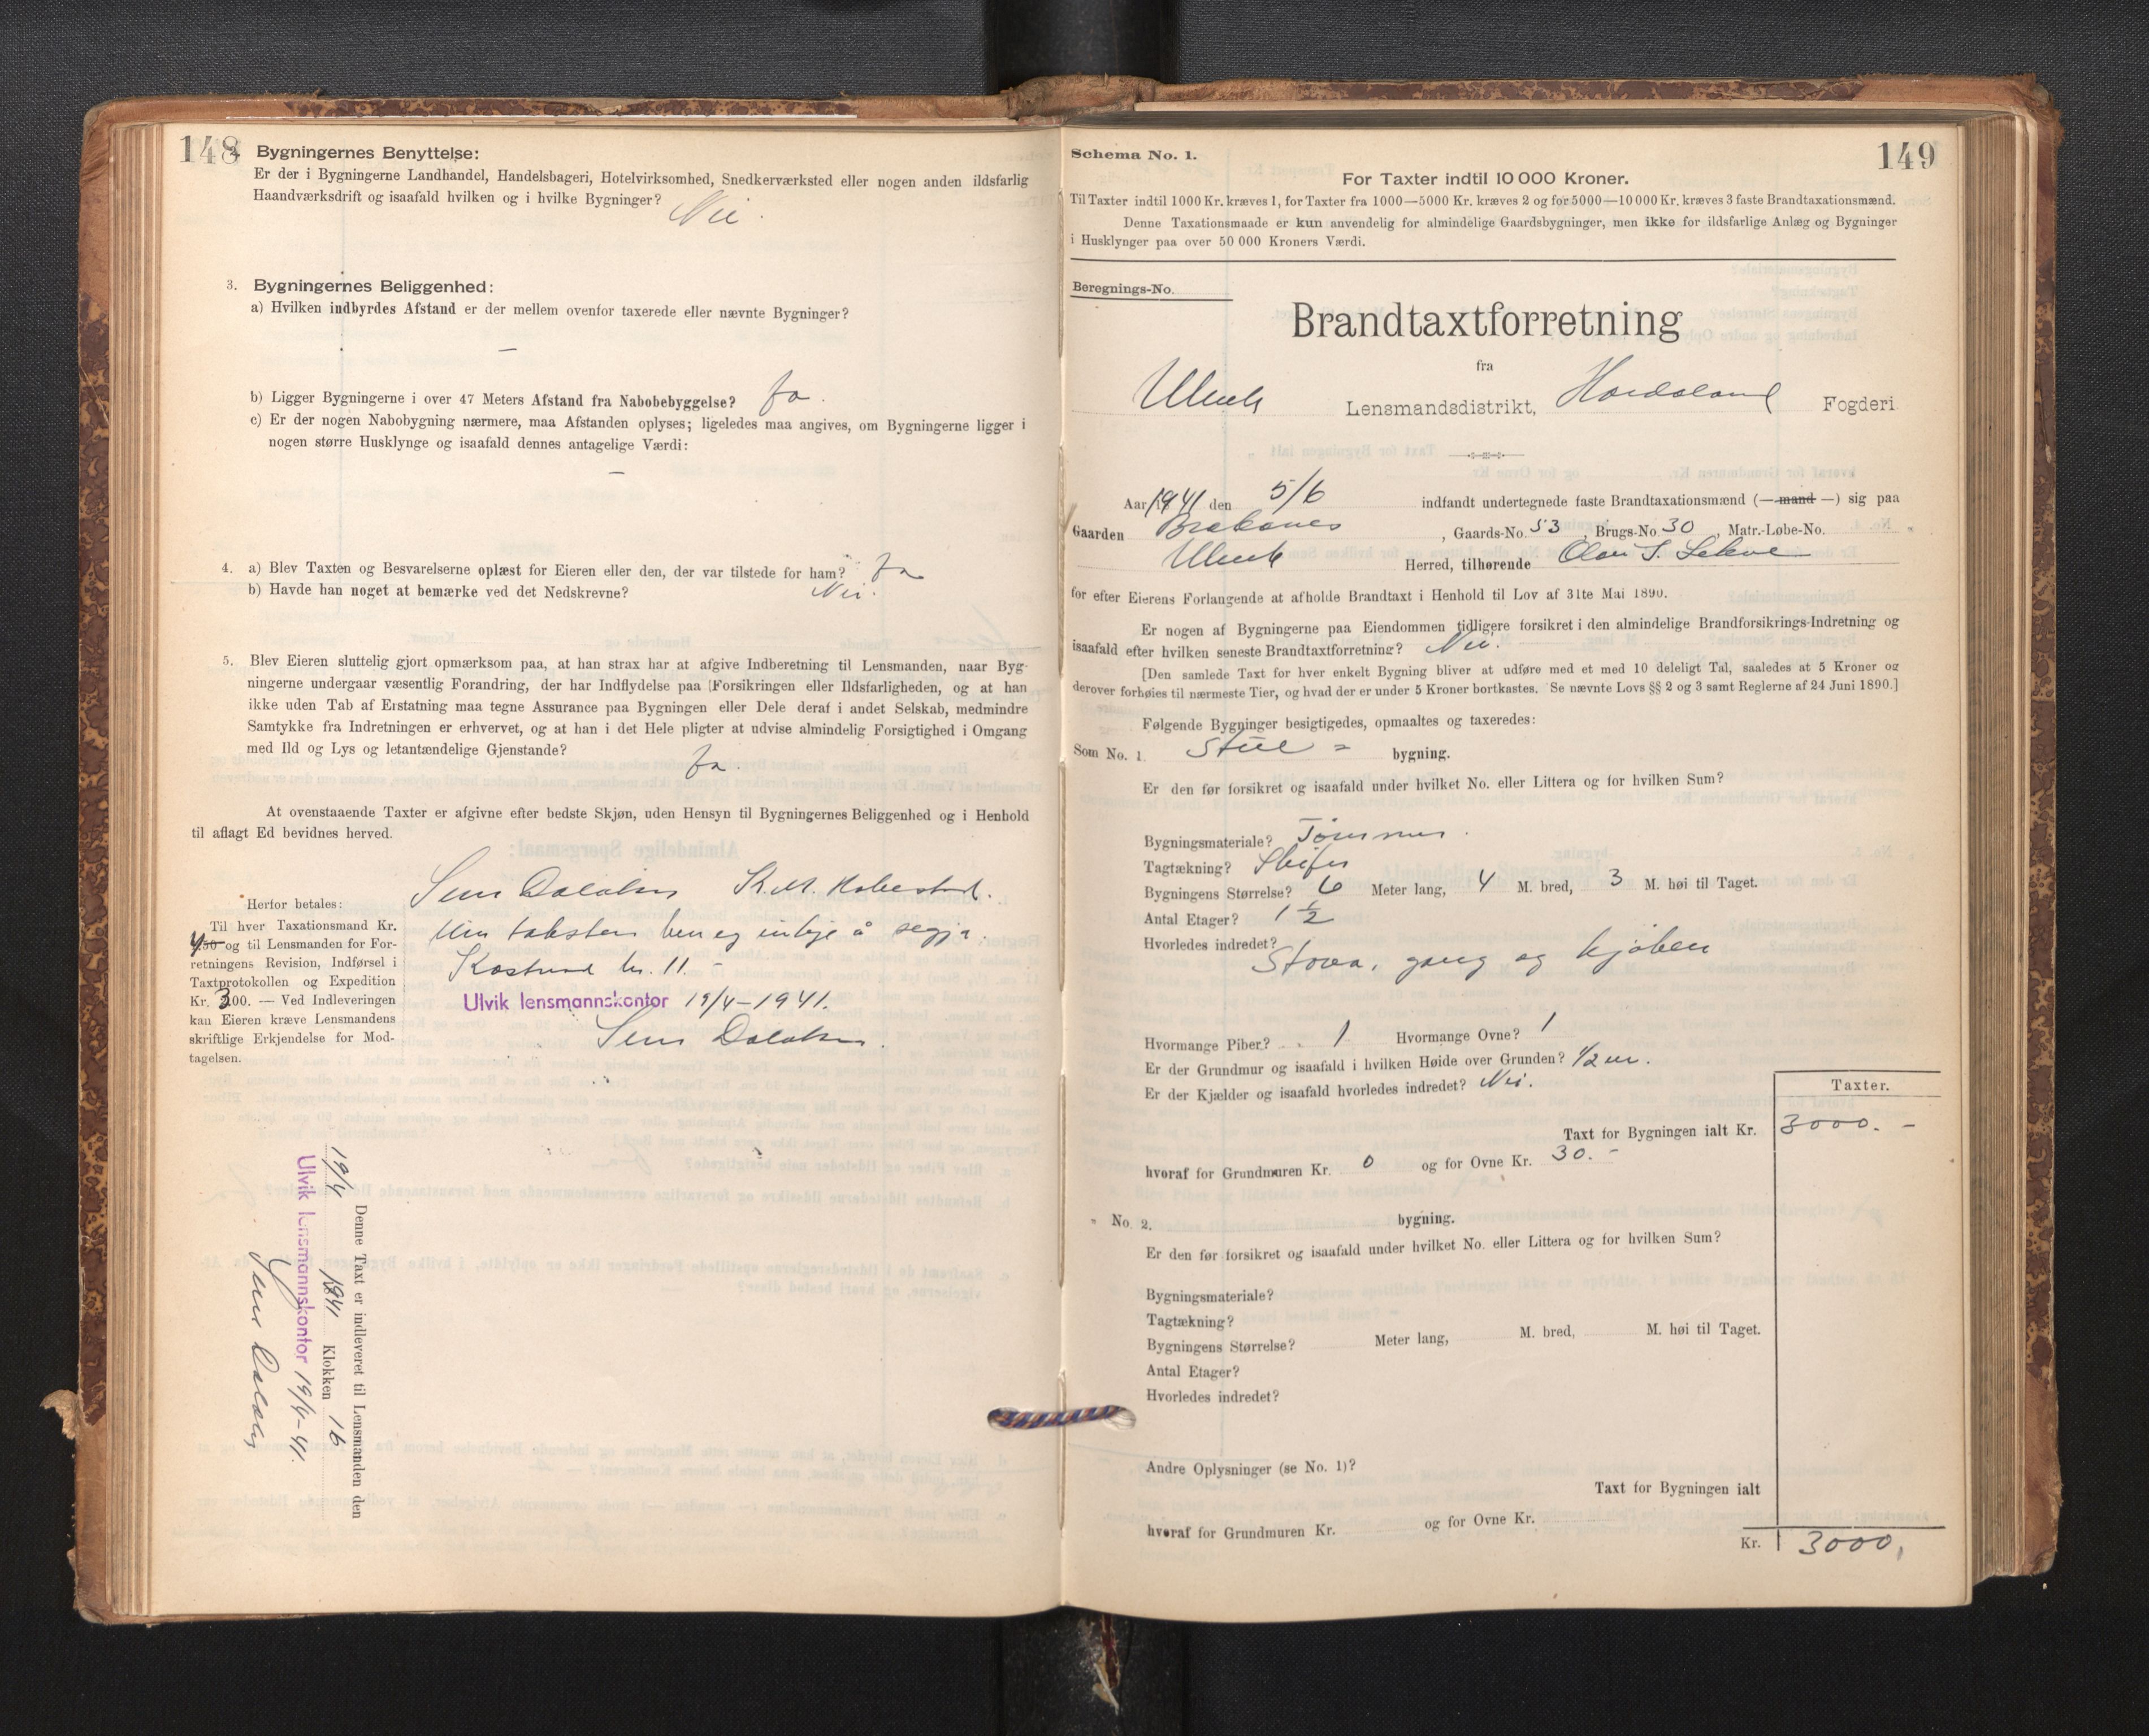 148
2. Bygningernes Benyttelse:
Er der i Bygningerne Landhandel, Handelsbageri, Hotelvirksomhed, Snedkerværksted eller nogen anden ildsfarlig
Haandværksdrift og isaafald hvilken og i hvilke Bygninger? Nei.
3. Bygningernes Beliggenhed:
a) Hvilken indbyrdes Afstand er der mellem ovenfor taxerede eller nævnte Bygninger?
—
b) Ligger Bygningerne i over 47 Meters Afstand fra Nabobebyggelse? Ja.
c) Er der nogen Nabobygning nærmere, maa Afstanden oplyses; ligeledes maa angives, om Bygningerne ligger i
nogen større Husklynge og isaafald dennes antagelige Værdi:
—
4. a) Blev Taxten og Besvarelserne oplæst for Eieren eller den, der var tilstede for ham? Ja
b) Havde han noget at bemærke ved det Nedskrevne? Nei.
5. Blev Eieren sluttelig gjort opmærksom paa, at han strax har at afgive Indberetning til Lensmanden, naar Byg-
ningerne undergaar væsentlig Forandring, der har Indflydelse paa Forsikringen eller Ildsfarligheden, og at han
ikke uden Tab af Erstatning maa tegne Assurance paa Bygningen eller Dele deraf i andet Selskab, medmindre
Samtykke fra Indretningen er erhvervet, og at han i det Hele pligter at udvise almindelig Forsigtighed i Omgang
med Ild og Lys og letantændelige Gjenstande? Ja.
At ovenstaaende Taxter er afgivne efter bedste Skjøn, uden Hensyn til Bygningernes Beliggenhed og i Henhold
til aflagt Ed bevidnes herved.
K. M.
Herfor betales:
Til hver Taxationsmand Kr.
4.50 og til Lensmanden for For-
retningens Revision, Indførsel i
Taxtprotokollen og Expedition
Kr. 3.00. — Ved Indleveringen
kan Eieren kræve Lensmandens
skriftlige Erkjendelse for Mod-
tagelsen.
Um taksten hev eg inkje å segja.
Kostnad kr. 11.-
Ulvik lensmannskontor 19/4-1941.
Denne Taxt er indleveret til Lensmanden den
19/4 1941 Klokken 16
Ulvik lensmannskontor 19/4-41.
149
Schema No. 1.
For Taxter indtil 10 000 Kroner.
Til Taxter indtil 1000 Kr. kræves 1, for Taxter fra 1000—5000 Kr. kræves 2 og for 5000—10 000 Kr. kræves 3 faste Brandtaxationsmænd.
Denne Taxationsmaade er kun anvendelig for almindelige Gaardsbygninger, men ikke for ildsfarlige Anlæg og Bygninger
i Husklynger paa over 50 000 Kroners Værdi.
Beregnings-No.
Brandtaxtforretning
fra
Ulvik Lensmandsdistrikt, Hordaland Fogderi
Aar 1941 den 5/6 indfandt undertegnede faste Brandtaxationsmænd (— mand —) sig paa
Gaarden Brakanes, Gaards-No. 53, Brugs-No. 30, Matr.-Løbe-No.
Ulvik Herred, tilhørende Olav S. Lekve
for efter Eierens Forlangende at afholde Brandtaxt i Henhold til Lov af 31te Mai 1890.
Er nogen af Bygningerne paa Eiendommen tidligere forsikret i den almindelige Brandforsikrings-Indretning og
isaafald efter hvilken seneste Brandtaxtforretning? Nei.
[Den samlede Taxt for hver enkelt Bygning bliver at udføre med et med 10 deleligt Tal, saaledes at 5 Kroner og
derover forhøies til nærmeste Tier, og hvad der er under 5 Kroner bortkastes. Se nævnte Lovs §§ 2 og 3 samt Reglerne af 24 Juni 1890.]
Følgende Bygninger besigtigedes, opmaaltes og taxeredes:
Som No. 1. bygning.
Er den før forsikret og isaafald under hvilket No. eller Littera og for hvilken Sum?
Bygningsmateriale? Tømmer.
Tagtækning? Skifer
Bygningens Størrelse? 6 Meter lang, 4 M. bred, 3 M. høi til Taget.
Antal Etager? 1 ½
Hvorledes indredet? Stova, gang og kjøken
Hvormange Piber? 1 Hvormange Ovne? 1
Er der Grundmur og isaafald i hvilken Høide over Grunden? 1/2 m.
Er der Kjælder og isaafald hvorledes indredet? Nei.
Taxter.
Taxt for Bygningen ialt Kr. 3000.-
hvoraf for Grundmuren Kr. 0 og for Ovne Kr. 30.-
" No. 2. bygning.
Er den før forsikret og isaafald under hvilket No. eller Littera og for hvilken Sum?
Bygningsmateriale?
Tagtækning?
Bygningens Størrelse? Meter lang, M. bred, M. høi til Taget.
Antal Etager?
Hvorledes indredet?
Andre Oplysninger (se No. 1)?
Taxt for Bygningen ialt
hvoraf for Grundmuren Kr. og for Ovne Kr.
Kr. 3000,